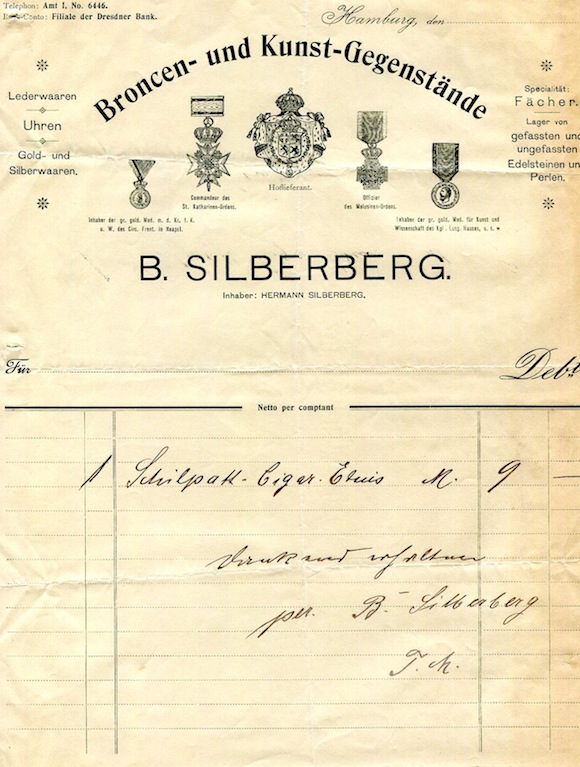 Telephon: Amt I, No. 6446.
Conto: Filiale der Dresdner Bank.
Hamburg, den
Broncen- und Kunst-Gegenstände
Lederwaaren
Uhren
Gold- und
Silberwaaren.
Specialität:
Fächer.
Lager von
gefassten und
ungefassten
Edelsteinen un
Perlen.
Commandeur des
St. Katharinen-Ordens.
Hoflieferant.
Offizier
des Melusinen-Ordens.
Inhaber der gr. gold. Med. m. d. Kr. f. K.
u. W. des Circ. Front. in Neapel.
Inhaber der gr. gold. Med. für Kunst und
Wissenschaft des Kgl. Hauses, u. s. w
B. SILBERBERG.
Inhaber: HERMANN SILBERBERG.
Für
Debt
Netto per comptant
1 Schilpatt-Cigar. Etuis M. 9 —
Dankend erhalten
per. B. Silberberg
T. M.